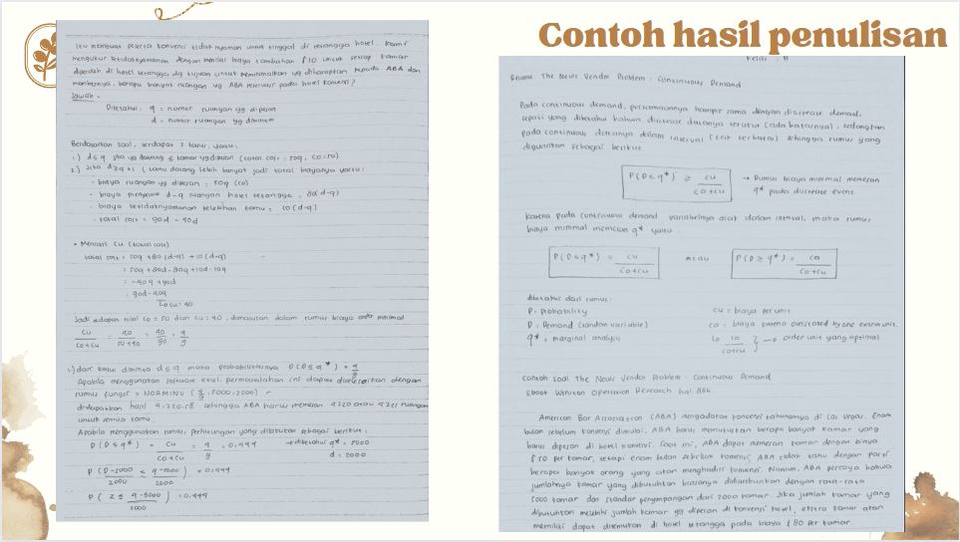 Contoh hasil penulisan
itu membuat peserta konvensi tidak nyaman untuk tinggal di tetangga hotel. Kami
mengukur ketidaknyamanan dengan menilai biaya tambahan $10 untuk setiap kamar
diperoleh di hotel tetangga. dg tujuan untuk meminimalkan yg diharapkan kepada ABA dan
berapa banyak ruangan yg ABA reservasi pada hotel konvensi?
Jawab.
Diketahui: q = nomor ruangan yg dipesan
d = nomor ruangan yg diminta
Berdasarkan soal, terdapat 2 kasus, yaitu:
1.) d ≤ q yg datang ≤ kamar yg dipesan (total cost: 50q, co: 50)
2.) Jika d ≥ q+1 (tamu datang lebih banyak jadi total biayanya yaitu:
- biaya ruangan yg dipesan: 50q (co)
- biaya penyewa d-q ruangan hotel tetangga: 80(d-q)
- biaya ketidaknyamanan kelebihan tamu: 10(d-q)
- total cost = 90d - 40q
• Mencari Cu (total cost)
total cost = 50q + 80(d-q) + 10(d-q)
= 50q + 80d - 80q + 10d - 10q
= -40q + 90d
= 90d - 40q
Cu = 40
Jadi didapat nilai Co = 50 dan Cu = 40, dimasukan dalam rumus biaya order minimal
Cu / Co+Cu = 40 / 50+40 = 40/90 = 4/9
dari kasus diminta d ≤ q maka probabilitasnya P(D ≤ q*) = 4/9
Apabila menggunakan software exel, permasalahan ini dapat diselesaikan dengan
rumus fungsi = NORMINV (4/9, 5000, 2000)
didapatkan hasil 4.720,58 sehingga ABA harus memesan 4720 atau 4721 ruangan
untuk semua tamu.
Apabila menggunakan rumus, perhitungan yang dilakukan sebagai berikut:
P(D ≤ q*) = Cu / Co+Cu = 4/9 = 0,444 → diketahui q* = 5000
d = 2000
P (D-5000 / 2000 ≤ q-5000 / 2000) = 0,444
P (Z ≤ q-5000 / 2000) = 0,444
Kelas : B
Resume The News Vendor Problem : Continuous Demand
Pada continuous demand, permasalahannya hampir sama dengan discrete demand,
seperti yang diketahui bahwa discrete datanya teratur (ada batasnya), sedangkan
pada continuous datanya dalam interval (tak terbatas) sehingga rumus yang
digunakan sebagai berikut
P(D ≤ q*) ≥ cu / co+cu → Rumus biaya minimal memesan
q* pada discrete event
Karena pada continuous demand variabelnya acak dalam interval, maka rumus
biaya minimal memesan q* yaitu
P(D ≤ q*) = cu / co+cu atau P(D ≥ q*) = co / co+cu
diketahui dari rumus:
P = Probability cu = biaya per unit
D = Demand (random variable) co = biaya karena overstocked by one extra unit
q* = marginal analysis co / co+cu } → order unit yang optimal
Contoh Soal The News Vendor Problem - Continuous Demand
Ebook Winston Operation Research hal 886
American Bar Association (ABA) mengadakan konvensi tahunannya di Las Vegas. Enam
bulan sebelum konvensi dimulai, ABA harus memutuskan berapa banyak kamar yang
harus dipesan di hotel konvensi. Saat ini, ABA dapat memesan kamar dengan biaya
$50 per kamar, tetapi enam bulan sebelum konvensi, ABA tidak tahu dengan pasti
berapa banyak orang yang akan menghadiri konvensi. Namun, ABA percaya bahwa
jumlahnya kamar yang dibutuhkan biasanya didistribusikan dengan rata-rata
5000 kamar dan standar penyimpangan dari 2000 kamar. Jika jumlah kamar yang
dibutuhkan melebihi jumlah kamar yg dipesan di konvensi hotel, ekstra kamar akan
memiliki dapat ditemukan di hotel tetangga pada biaya $80 per kamar